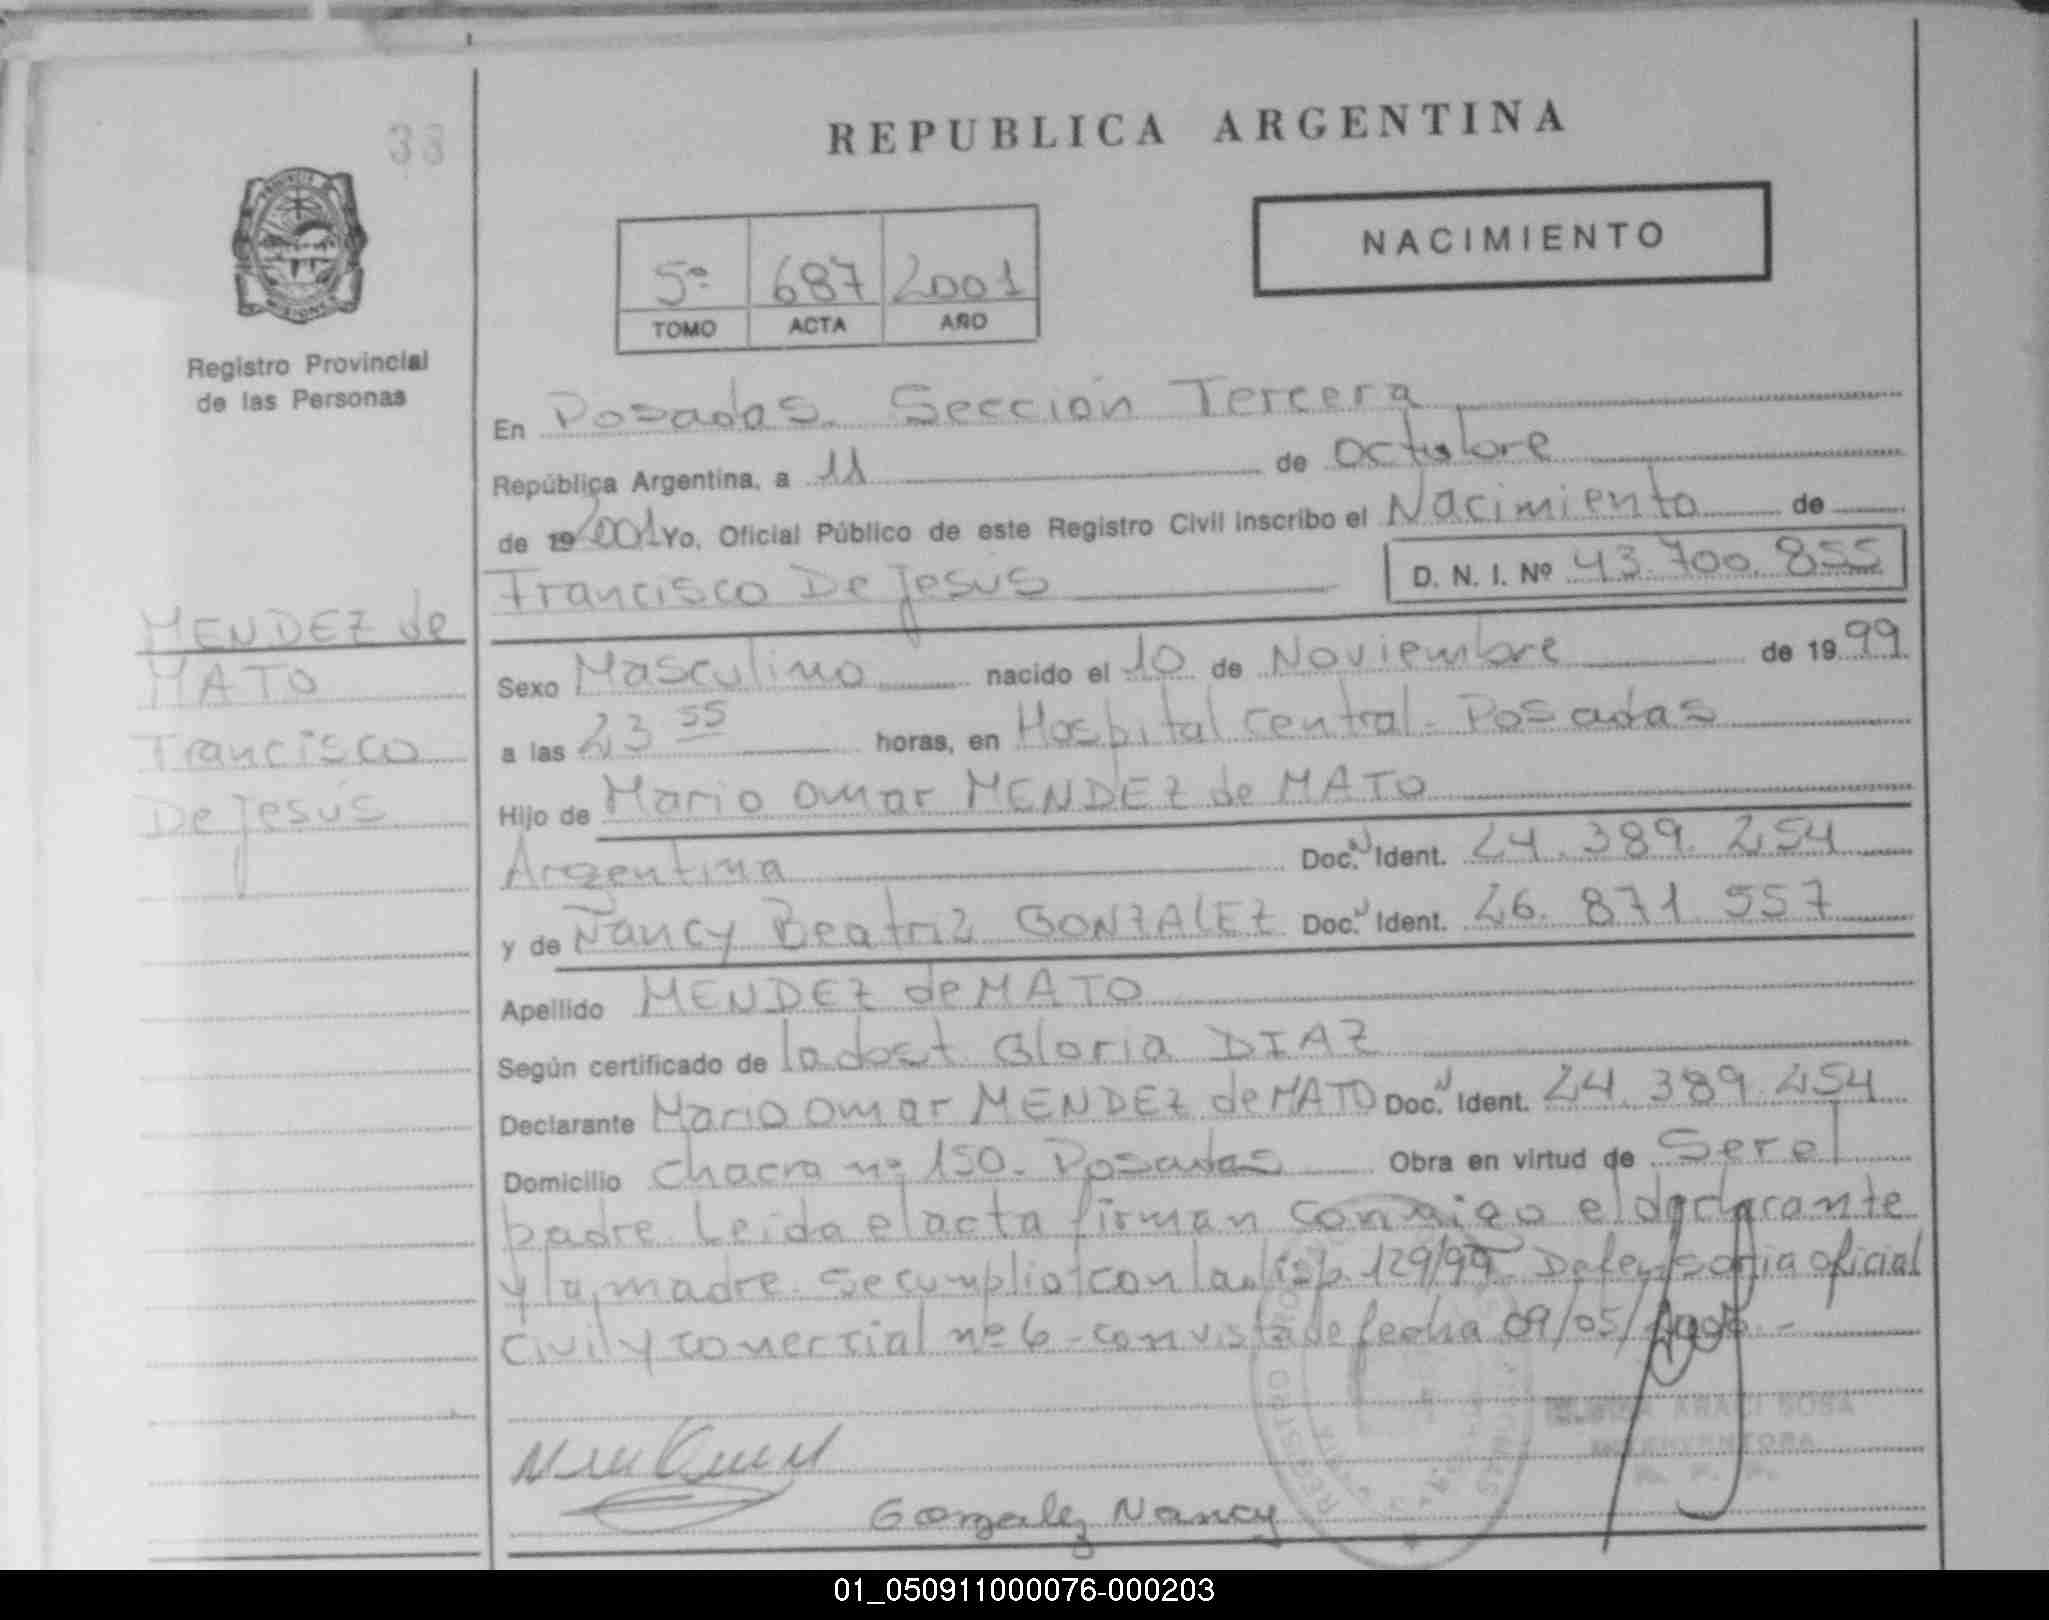 33
REPUBLICA ARGENTINA
NACIMIENTO
5º 687 2001
TOMO ACTA AÑO
Registro Provincial
de las Personas
En Posadas. Sección Tercera
República Argentina, a 11 de octubre
de 19 2001 Yo, Oficial Público de este Registro Civil inscribo el Nacimiento de
Francisco De Jesús D. N. I. Nº 43.700.855
MENDEZ de
MATO
Francisco
De Jesús
Sexo Masculino nacido el 10 de Noviembre de 19 99
a las 23 55 horas, en Hospital Central - Posadas
Hijo de Mario Omar MENDEZ de MATO
Argentina Doc. Ident. 24.389.254
y de Nancy Beatriz GONZALEZ Doc. Ident. 26.871.557
Apellido MENDEZ de MATO
Según certificado de la obst. Gloria DIAZ
Declarante Mario Omar MENDEZ de MATO Doc. Ident. 24.389.254
Domicilio Chacra nº 150. Posadas Obra en virtud de Ser el
padre. Leida el acta firman conmigo el declarante
y la madre. Se cumplio con la disp. 129/99 Defensoria oficial
civil y comercial nº 6 - con vista de fecha 09/05/
ARACI SOSA
INTERVENTORA
R. P. P.
Gonzalez Nancy
01_050911000076-000203